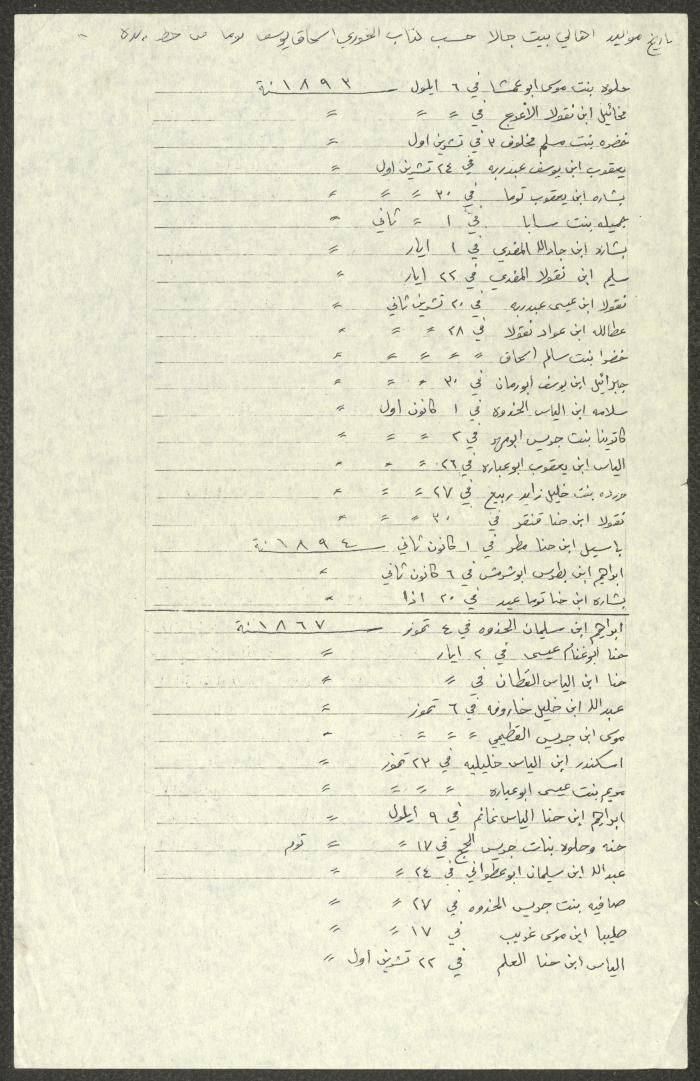 تاريخ مواليد اهالي بيت جالا حسب كتاب الخوري اسحاق يوسف توما من خط يده
حلوه بنت موسى ابو عمشا في ٦ ايلول سنة ١٨٩٣
مخائيل ابن نقولا الأعوج في 〃 〃 〃
خضره بنت مسلم مخلوف ٣ في تشرين اول 〃
يعقوب ابن يوسف عبدربه في ٢٤ تشرين اول 〃
بشاره ابن يعقوب توما في ٣٠ 〃 〃 〃
جميله بنت سابا في ١ 〃 ثاني 〃
بشاره ابن جادالله المفدي في ١ ايار 〃
سليم ابن نقولا المفدي في ٢٢ ايار 〃
نقولا ابن عيسى عبدربه في ٢٠ تشرين ثاني 〃
عطالله ابن عواد نقولا في ٢٨ 〃 〃 〃
خضرا بنت سالم اسحاق 〃 〃 〃 〃 〃
جبرائيل ابن يوسف ابورمان في ٣٠ 〃 〃 〃
سلامه ابن الياس الحذوه في ١ كانون اول 〃
كاتوينا بنت جريس ابومهر في ٢ 〃 〃 〃
الياس ابن يعقوب ابوعباره في ٢٦ 〃 〃 〃
ورده بنت خليل زايد ربيع في ٢٧ 〃 〃 〃
نقولا ابن حنا قنقر في ٣٠ 〃 〃 〃
باسيل ابن حنا مطر في ١ كانون ثاني سنة ١٨٩٤
ابراهيم ابن بطرس ابوشرمش في ٦ كانون ثاني 〃
بشاره ابن حنا توما عيد في ٢٠ اذا 〃
ابراهيم ابن سليمان الحذوه في ٤ تموز سنة ١٨٦٧
حنا ابوغنام عيسى في ٢ ايار 〃
حنا ابن الياس القطان في 〃 〃
عبدالله ابن خليل خاروفه في ٦ تموز 〃
موسى ابن جريس القطيمي 〃 〃 〃 〃
اسكندر ابن الياس خليليه في ٢٣ تموز 〃
مريم بنت عيسى ابوعباره 〃 〃 〃 〃
ابراهيم ابن حنا الياس غانم في ٩ ايلول 〃
حنه وحلوه بنات جريس الحج في ١٧ 〃 〃 توم
عبدالله ابن سليمان ابوعطواني في ٢٤ 〃 〃
صافيه بنت جريس الحذوه في ٢٧ 〃 〃
صليبا ابن موسى غريب في ١٧ 〃 〃
الياس ابن حنا العلم في ٢٢ تشرين اول 〃